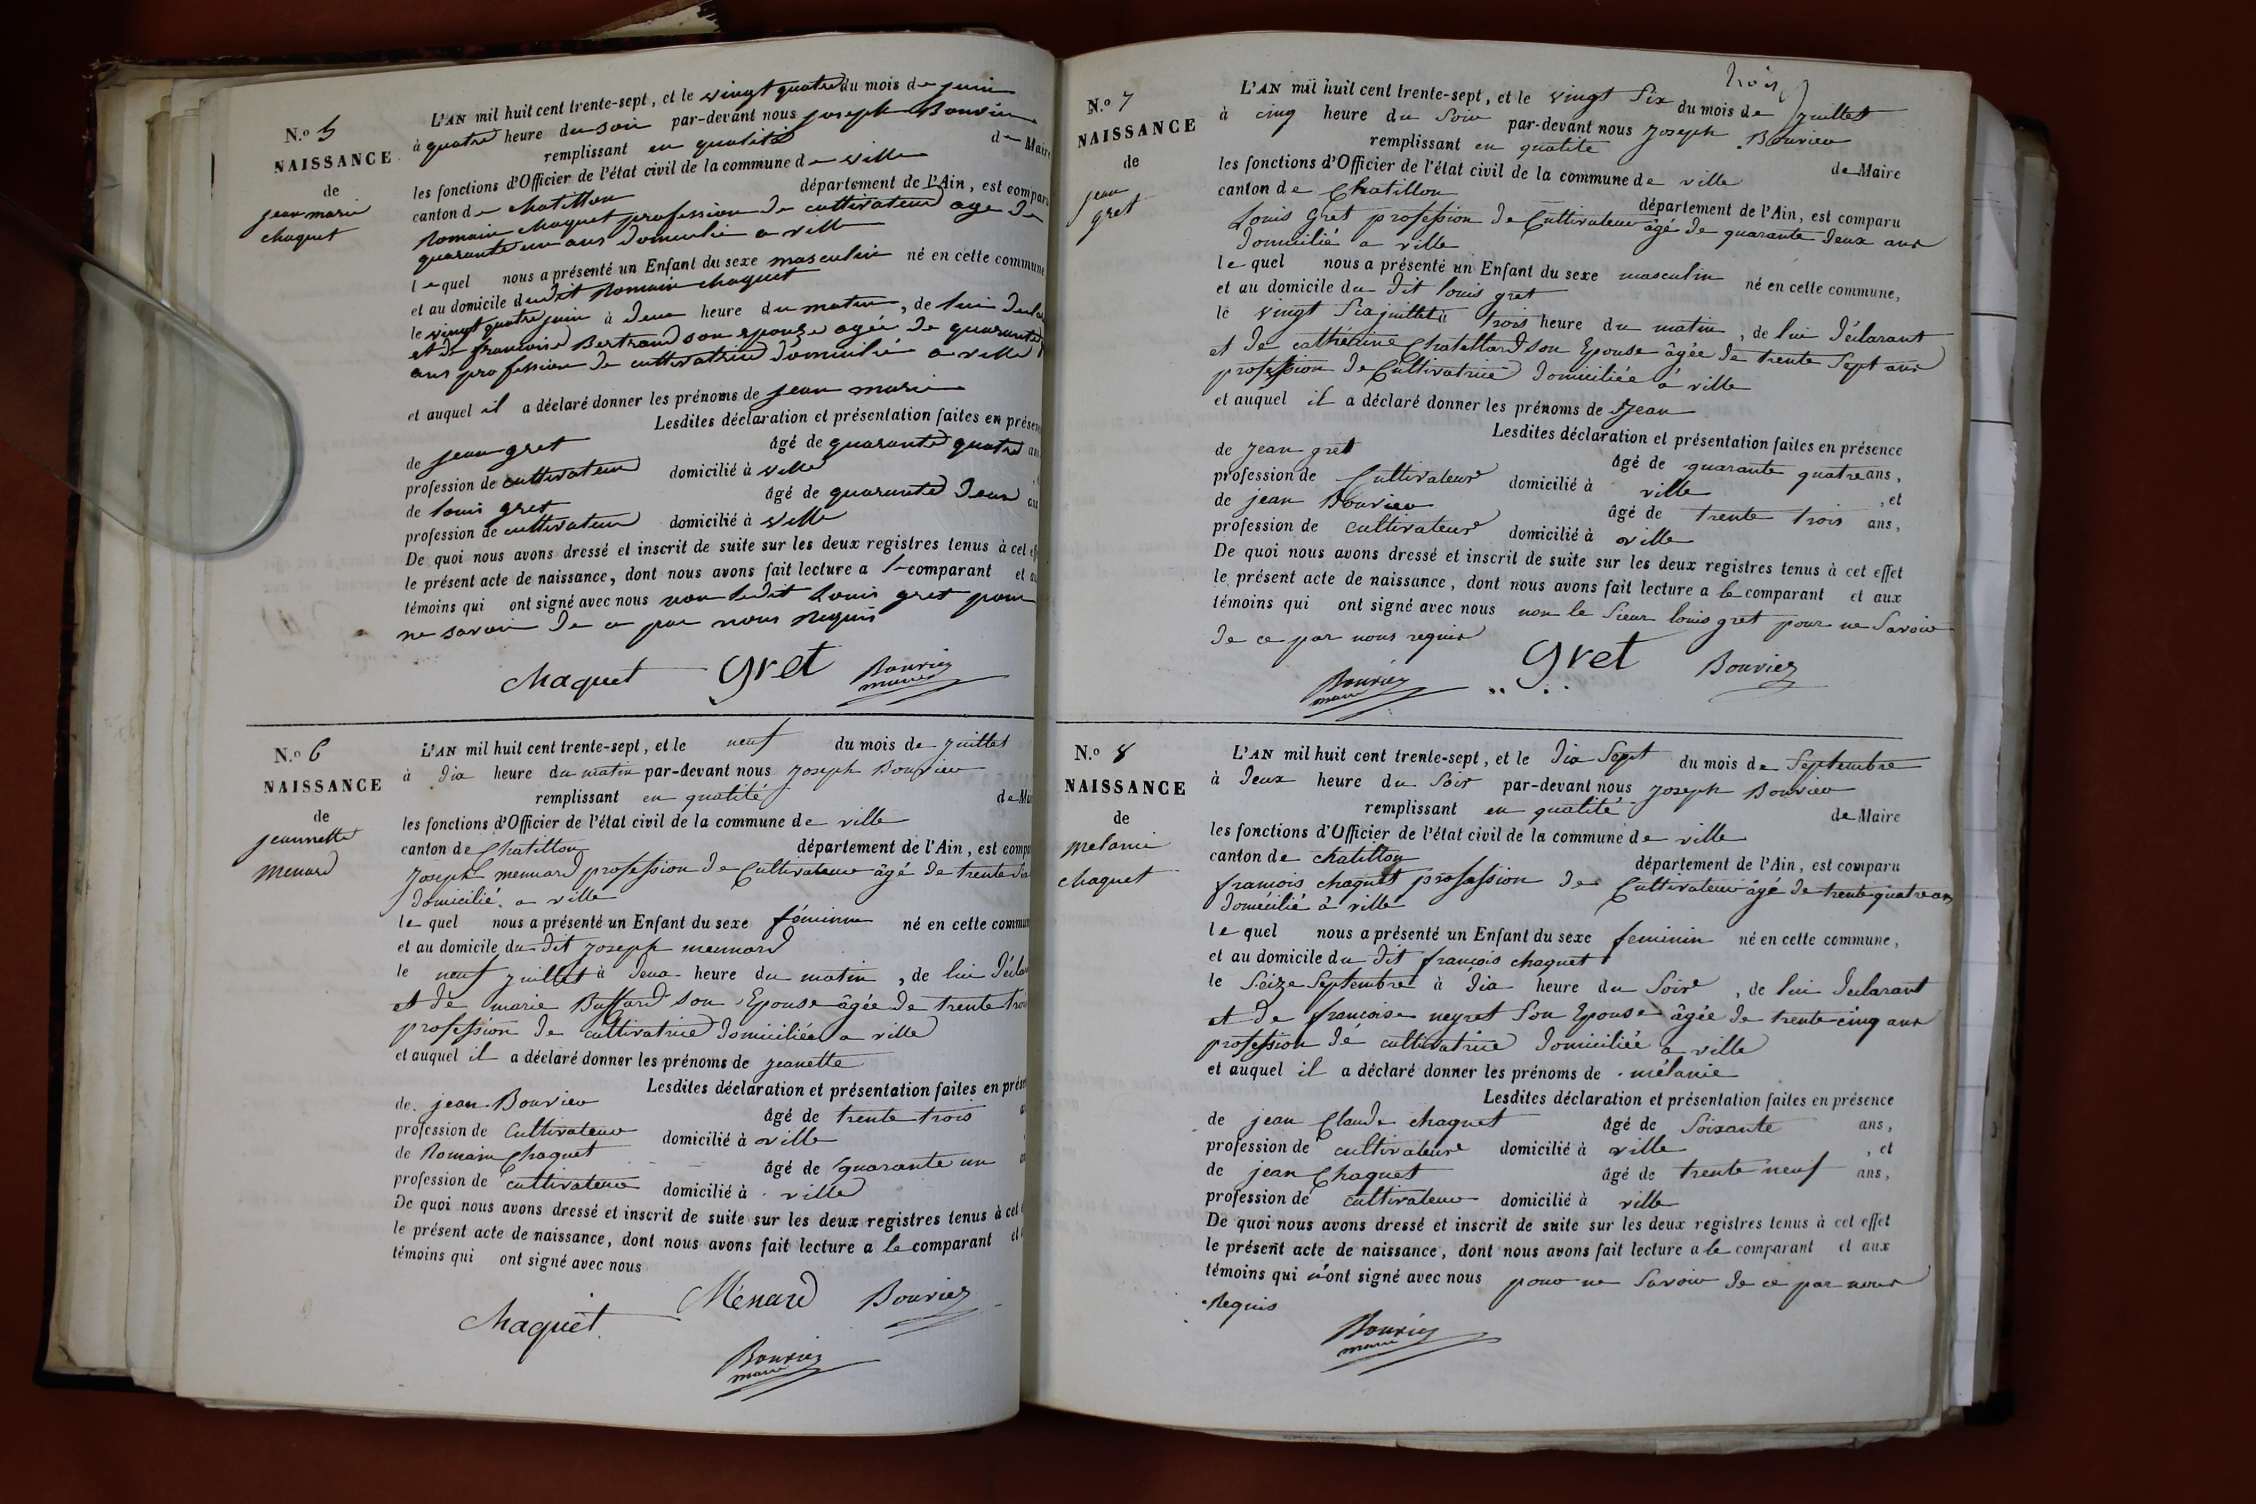 N.o 5
NAISSANCE
de
jean marie
chaquet
L'AN mil huit cent trente-sept, et le vingt quatre du mois de juin
à quatre heure du soir par-devant nous joseph Bouvier
remplissant en qualité de Maire
les fonctions d'Officier de l'état civil de la commune de ville
canton de chatillon département de l'Ain, est comparu
Romain chaquet profession de cultivateur age de
quarante un ans domicilie a ville
le quel nous a présenté un Enfant du sexe masculin né en cette commune
et au domicile du dit Romain chaquet
le vingt quatre juin à deux heure du matin, de lui
et de francoise Bertrand son epouse agée de quarante
ans profession de cultivatrice domicilié a ville
et auquel il a déclaré donner les prénoms de jean marie
Lesdites déclaration et présentation faites en
de jean gret âgé de quarante quatre
profession de cultivateur domicilié à ville
de louis gret âgé de quarante deux
profession de cultivateur domicilié à ville
De quoi nous avons dressé et inscrit de suite sur les deux registres tenus à cet
le présent acte de naissance, dont nous avons fait lecture a le comparant et
témoins qui ont signé avec nous non ledit louis gret pour
ne savoir de ce par nous Requis
Chaquet gret Bouvier
maire
N.o 6
NAISSANCE
de
jeannette
Menard
L'AN mil huit cent trente-sept, et le neuf du mois de juillet
à dix heure du matin par-devant nous joseph Bouvier
remplissant en qualité de
les fonctions d'Officier de l'état civil de la commune de ville
canton de Chatillon département de l'Ain, est
joseph mennard profession de Cultivateur âgé de trente
domicilié a ville
le quel nous a présenté un Enfant du sexe féminin né en cette
et au domicile du dit joseph mennard
le neuf juillet à deux heure du matin, de lui
et de marie Buffard son Epouse âgée de trente
profession de cultivatrice domiciliée a ville
et auquel il a déclaré donner les prénoms de jeanette
Lesdites déclaration et présentation faites en
de jean Bouvier âgé de trente trois
profession de Cultivateur domicilié à ville
de Romain Chaquet âgé de quarante un
profession de cultivateur domicilié à ville
De quoi nous avons dressé et inscrit de suite sur les deux registres tenus à cet
le présent acte de naissance, dont nous avons fait lecture a le comparant et
témoins qui ont signé avec nous
Chaquet Ménard Bouvier
Bouvier
maire
N.o 7
NAISSANCE
de
jean
gret
L'AN mil huit cent trente-sept, et le vingt six du mois de juillet
à cinq heure du Soir par-devant nous joseph Bouvier
remplissant en qualité de Maire
les fonctions d'Officier de l'état civil de la commune de ville
canton de Chatillon département de l'Ain, est comparu
Louis gret profession de Cultivateur âgé de quarante deux ans
domicilié a ville
le quel nous a présenté un Enfant du sexe masculin né en cette commune,
et au domicile du dit louis gret
le vingt six juillet à trois heure du matin, de lui déclarant
et de cathérine Chatellard son Epouse âgée de trente Sept ans
profession de Cultivatrice domiciliée à ville
et auquel il a déclaré donner les prénoms de jean
Lesdites déclaration et présentation faites en présence
de jean gret âgé de quarante quatre ans,
profession de Cultivateur domicilié à ville, et
de jean Bouvier âgé de trente trois ans,
profession de cultivateur domicilié à ville
De quoi nous avons dressé et inscrit de suite sur les deux registres tenus à cet effet
le présent acte de naissance, dont nous avons fait lecture a le comparant et aux
témoins qui ont signé avec nous non le Sieur louis gret pour ne Savoir
de ce par nous requis
Bouvier gret Bouvier
maire
N.o 8
NAISSANCE
de
melanie
chaquet
L'AN mil huit cent trente-sept, et le dix Sept du mois de Septembre
à deux heure du Soir par-devant nous joseph Bouvier
remplissant en qualité de Maire
les fonctions d'Officier de l'état civil de la commune de ville
canton de chatillon département de l'Ain, est comparu
francois chaquet profession de Cultivateur âgé de trente quatre ans
domicilié à ville
le quel nous a présenté un Enfant du sexe feminin né en cette commune,
et au domicile du dit francois chaquet
le Seize Septembre à dix heure du Soir, de lui declarant
et de francoise neyret Son Epouse âgée de trente cinq ans
profession de cultivatrice domiciliée a ville
et auquel il a déclaré donner les prénoms de mélanie
Lesdites déclaration et présentation faites en présence
de jean Claude chaquet âgé de Soixante ans,
profession de cultivateur domicilié à ville, et
de jean Chaquet âgé de trente neuf ans,
profession de cultivateur domicilié à ville
De quoi nous avons dressé et inscrit de suite sur les deux registres tenus à cet effet
le présent acte de naissance, dont nous avons fait lecture a le comparant et aux
témoins qui n'ont signé avec nous pour ne Savoir de ce par nous
Requis
Bouvier
maire